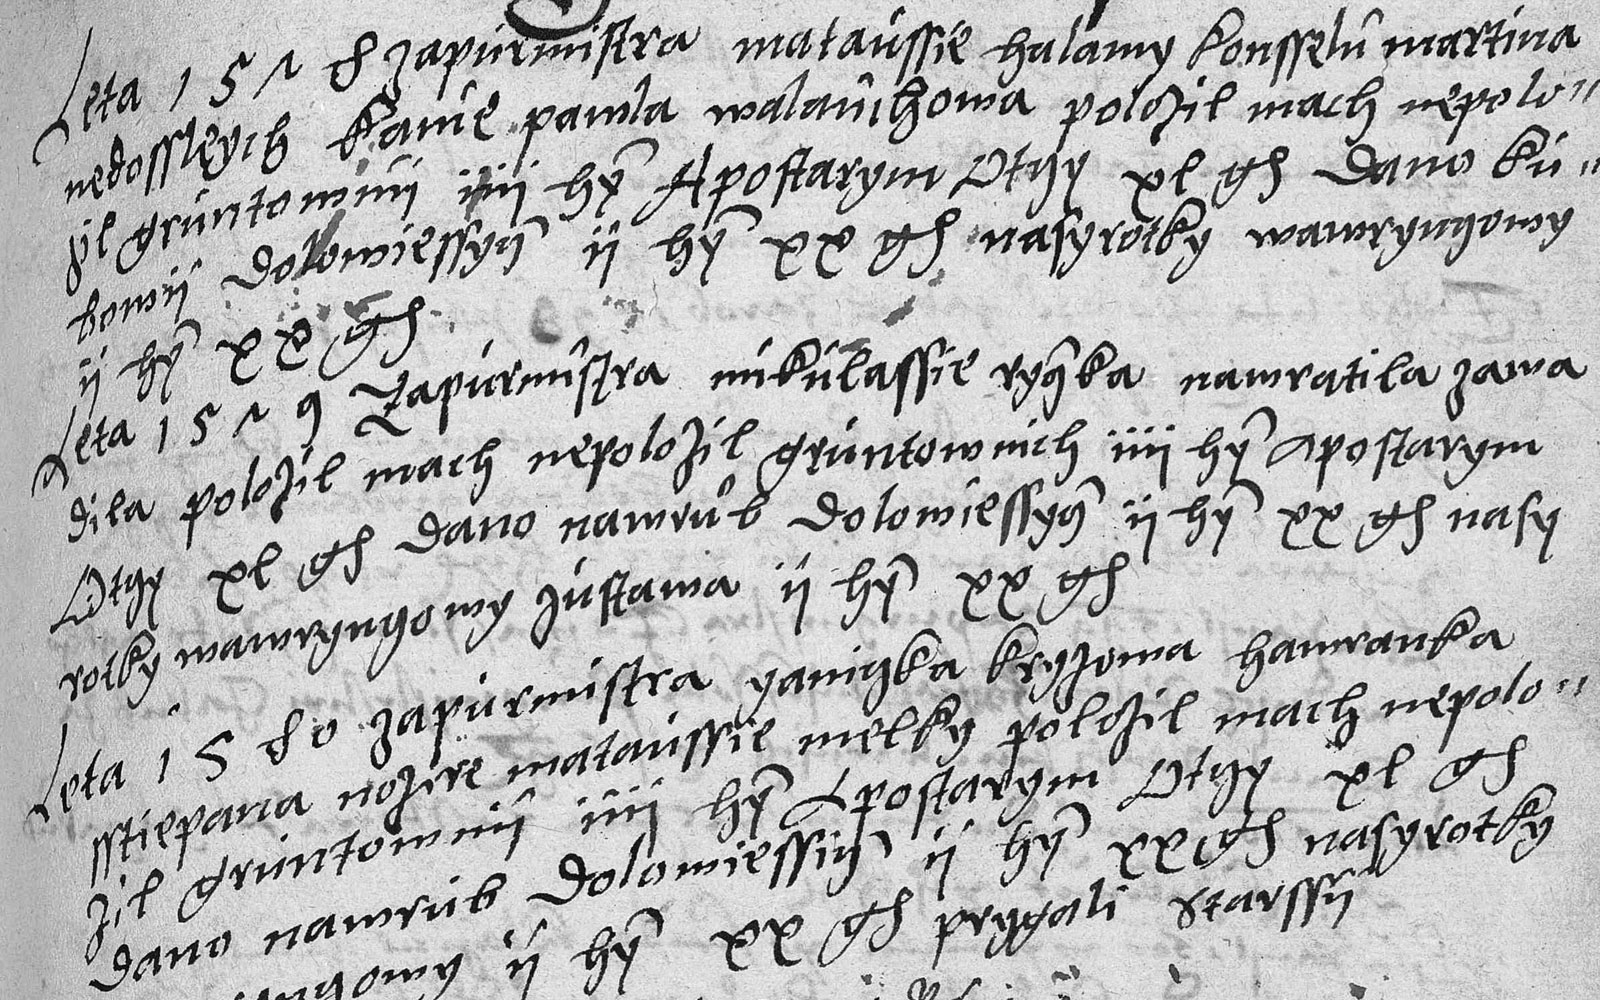 Leta 1578 zapurmistra matausse halamy konsselu martina
nedosslych kanie pawla walauchowa polozil mach nepolo"
zil gruntownij iiij hrz Apostarym Otczy xl gs dano ku"
bowij dolomiessyn ij hrz xx gs nasyrotky wawryngowy
ij hrz xx gs
Leta 1579 zapurmistra mikulassie nawratila zawa
dila polozil mach nepolozil gruntownich iiij hrz apostarym
Otczy xl gs dano nawrub dolomiessyn ij hrz xx gs nasy
rotky wawryngowy zustawa ij hrz xx gs
Leta 1580 zapurmistra yanigka kryzowa hawranka
sstiepana nozire mataussie melky polozil mach nepolo"
zil gruntownij iiij hrz Apostarym Otczy xl gs
dano nawrub dolomiessyn ij hrz xx gs nasyrotky
ij hrz xx gs prygali Starssij